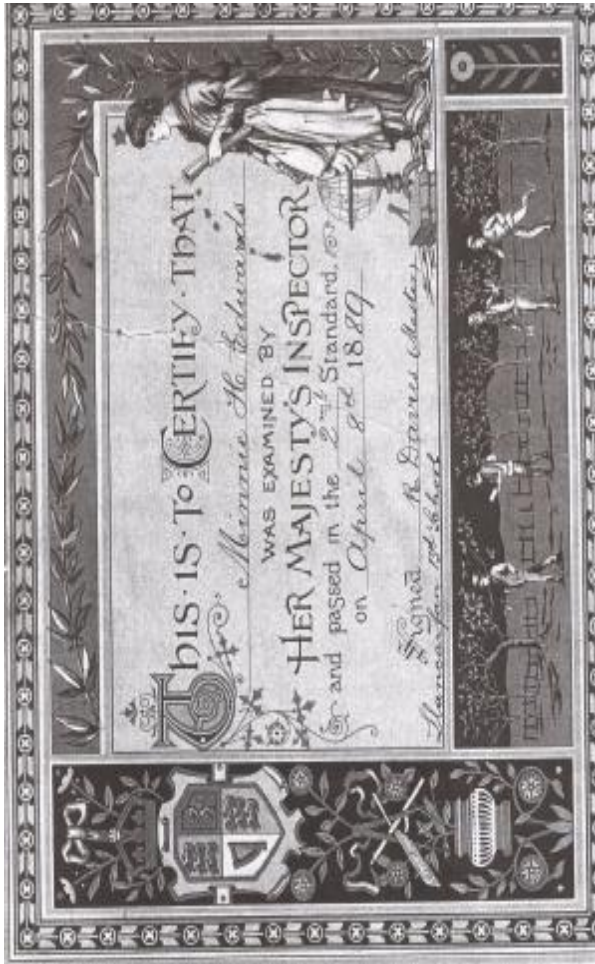 THIS · IS · TO CERTIFY · THAT
Minnie H. Edwards
WAS EXAMINED BY
HER MAJESTY'S INSPECTOR
and passed in the 2nd Standard,
on April 8th 1889
Signed R Davies Master
Llancarfan School